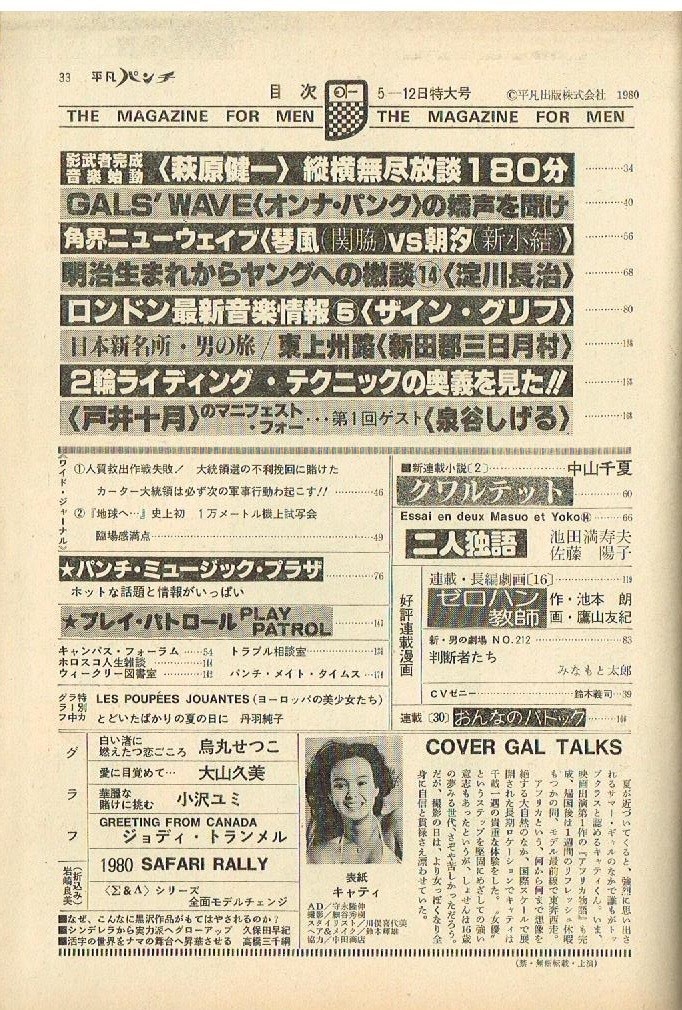 33 平凡パンチ
目次
5—12日特大号
©平凡出版株式会社 1980
THE MAGAZINE FOR MEN
THE MAGAZINE FOR MEN
影武者完成
音楽始動
〈萩原健一〉縦横無尽放談180分 34
GALS' WAVE〈オンナ・パンク〉の嬌声を聞け 40
角界ニューウェイブ〈琴風(関脇)VS朝汐(新小結)〉 56
明治生まれからヤングへの檄談⑭〈淀川長治〉 68
ロンドン最新音楽情報⑤〈ザイン・グリフ〉 80
日本新名所・男の旅/東上州路〈新田郡三日月村〉
2輪ライディング・テクニックの奥義を見た!!
〈戸井十月〉のマニフェスト・フォー…第1回ゲスト〈泉谷しげる〉
〈ワイド・ジャーナル〉
①人質救出作戦失敗! 大統領選の不利挽回に賭けた
カーター大統領は必ず次の軍事行動わ起こす!! 46
②『地球へ…』史上初 1万メートル機上試写会
臨場感満点 49
★パンチ・ミュージック・プラザ 76
ホットな話題と情報がいっぱい
★プレイ・パトロール PLAY PATROL
キャンパス・フォーラム 54
トラブル相談室
ホロスコ人生雑談
ウィークリー図書室
パンチ・メイト・タイムス
特別グラフ中
LES POUPÉES JOUANTES (ヨーロッパの美少女たち)
とどいたばかりの夏の日に 丹羽純子
■新連載小説〔2〕 中山千夏
クワルテット 60
Essai en deux Masuo et Yoko 66
二人独語 池田満寿夫
佐藤陽子
好評連載漫画
連載・長編劇画〔16〕 119
ゼロハン教師 作・池本朗
画・鷹山友紀
新・男の劇場 NO.212 83
判断者たち
みなもと太郎
CVゼニー 鈴木義司 39
連載〔30〕おんなのパドック
グラフ
白い渚に
燃えたつ恋ごころ 烏丸せつこ
愛に目覚めて… 大山久美
華麗な
賭けに挑む 小沢ユミ
GREETING FROM CANADA
ジョディ・トランメル
1980 SAFARI RALLY
〈Σ&Λ〉シリーズ
全面モデルチェンジ
(折込み)
岩崎良美
■なぜ、こんなに黒沢作品がもてはやされるのか?
■シンデレラから実力派へグローアップ 久保田早紀
■活字の世界をナマの舞台へ昇華させる 高橋三千綱
表紙
キャティ
AD/守永隆伸
撮影/細谷秀樹
スタイリスト/川俣喜代美
ヘア&メイク/鈴木輝雄
協力/中田商店
COVER GAL TALKS
夏が近づいてくると、強烈に思い出さ
れるサマー・ギャルのなかで誰もがトッ
プクラスと認めるキャティくん。いま、
映画出演第1作の『アフリカ物語』も完
成、帰国後は1週間のリフレッシュ休暇
もつかの間、モデル最前線で東奔西走。
アフリカという、何から何まで想像を
絶する大自然のなか、国際スケールで展
開された長期ロケーションでキャティは
千載一遇の貴重な体験をした。〝女優〟
というステップを堅固にめざしての強い
意志もあったというが、しょせんは16歳
の夢みる世代、さぞや苦しかっただろう。
だが、撮影の日は、より女っぽくなり全
身に自信と貫禄さえ漂わせていた。
(禁・無断転載・上演)